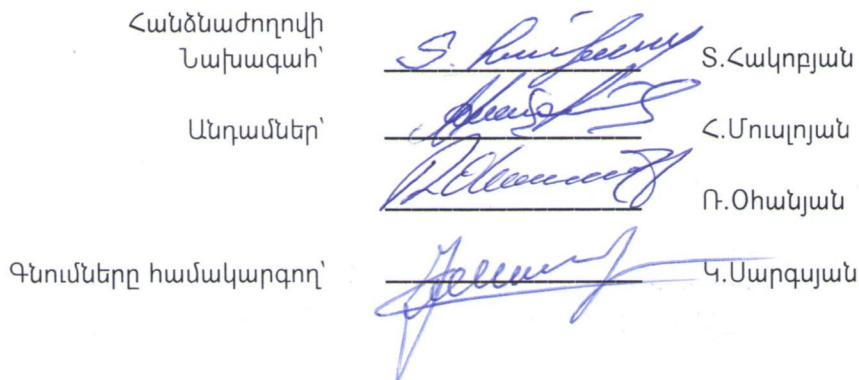 Հանձնաժողովի
Նախագահ՝ Տ.Հակոբյան
Անդամներ՝ Հ.Մուսլոյան
Ռ.Օհանյան
Գնումները համակարգող՝ Կ.Սարգսյան